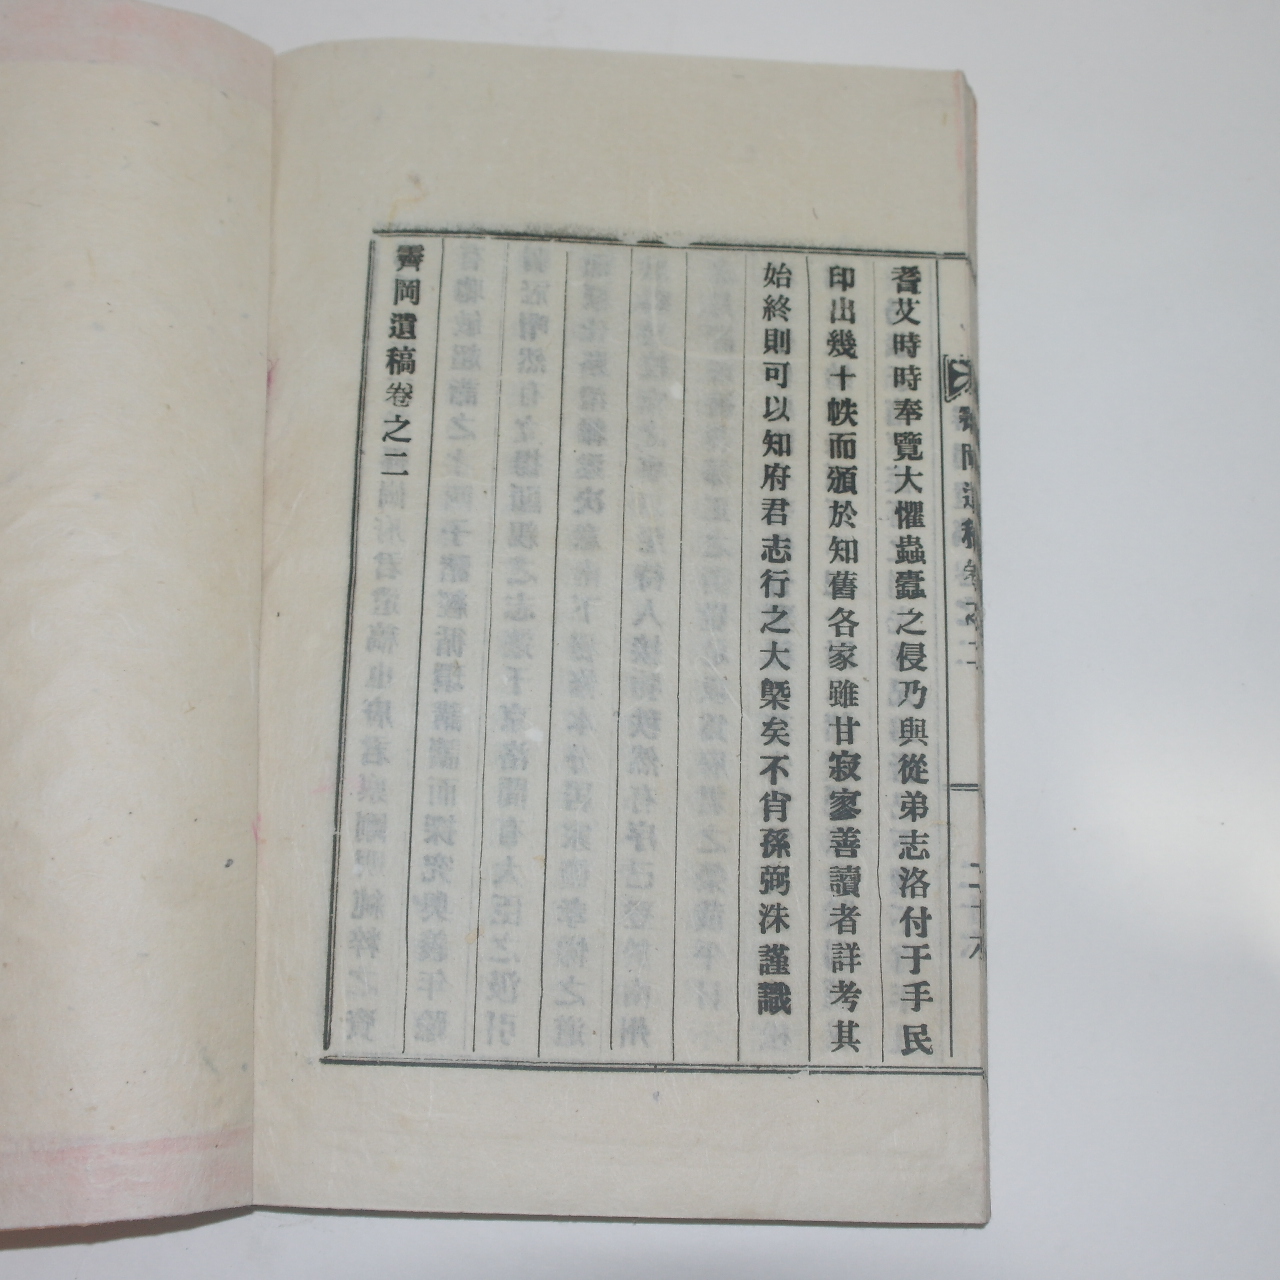 耆艾時時奉覽大懼蟲蠹之侵乃與從弟志洛付于手民
印出幾十帙而頒於知舊各家雖甘寂寥善讀者詳考其
始終則可以知府君志行之大槩矣不肖孫弼洙謹識
霽岡遺稿卷之二
霽岡遺稿卷之二